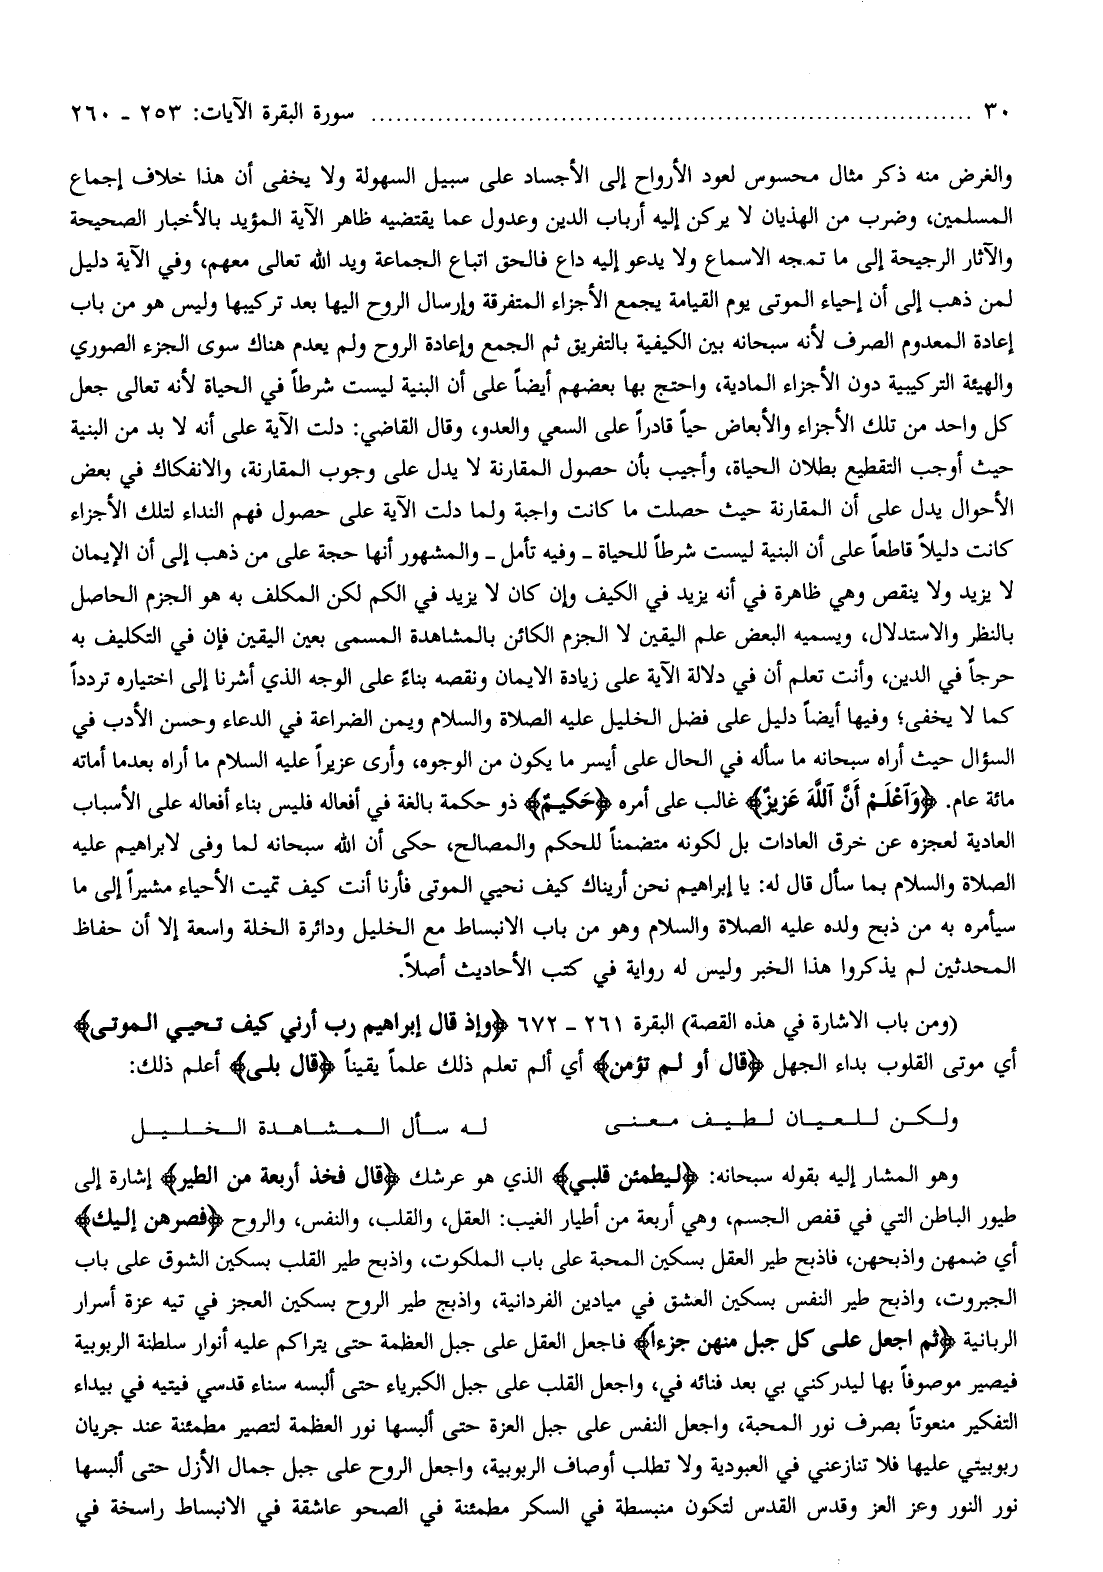 ٣٠ ........................................................................ سورة البقرة الآيات: ٢٥٣ ـ ٢٦٠
والغرض منه ذكر مثال محسوس لعود الأرواح إلى الأجساد على سبيل السهولة ولا يخفى أن هذا خلاف إجماع
المسلمين، وضرب من الهذيان لا يركن إليه أرباب الدين وعدول عما يقتضيه ظاهر الآية المؤيد بالأخبار الصحيحة
والآثار الرجيحة إلى ما تمجه الاسماع ولا يدعو إليه داع فالحق اتباع الجماعة ويد الله تعالى معهم، وفي الآية دليل
لمن ذهب إلى أن إحياء الموتى يوم القيامة يجمع الأجزاء المتفرقة وإرسال الروح اليها بعد تركيبها وليس هو من باب
إعادة المعدوم الصرف لأنه سبحانه بين الكيفية بالتفريق ثم الجمع وإعادة الروح ولم يعدم هناك سوى الجزء الصوري
والهيئة التركيبية دون الأجزاء المادية، واحتج بها بعضهم أيضاً على أن البنية ليست شرطاً في الحياة لأنه تعالى جعل
كل واحد من تلك الأجزاء والأبعاض حياً قادراً على السعي والعدو، وقال القاضي: دلت الآية على أنه لا بد من البنية
حيث أوجب التقطيع بطلان الحياة، وأجيب بأن حصول المقارنة لا يدل على وجوب المقارنة، والانفكاك في بعض
الأحوال يدل على أن المقارنة حيث حصلت ما كانت واجبة ولما دلت الآية على حصول فهم النداء لتلك الأجزاء
كانت دليلاً قاطعاً على أن البنية ليست شرطاً للحياة ـ وفيه تأمل ـ والمشهور أنها حجة على من ذهب إلى أن الإيمان
لا يزيد ولا ينقص وهي ظاهرة في أنه يزيد في الكيف وإن كان لا يزيد في الكم لكن المكلف به هو الجزم الحاصل
بالنظر والاستدلال، ويسميه البعض علم اليقين لا الجزم الكائن بالمشاهدة المسمى بعين اليقين فإن في التكليف به
حرجاً في الدين، وأنت تعلم أن في دلالة الآية على زيادة الايمان ونقصه بناءً على الوجه الذي أشرنا إلى اختياره تردداً
كما لا يخفى؛ وفيها أيضاً دليل على فضل الخليل عليه الصلاة والسلام ويمن الضراعة في الدعاء وحسن الأدب في
السؤال حيث أراه سبحانه ما سأله في الحال على أيسر ما يكون من الوجوه، وأرى عزيراً عليه السلام ما أراه بعدما أماته
مائة عام. ﴿وَٱعْلَمْ أَنَّ ٱللَّهَ عَزِيزٌ﴾ غالب على أمره ﴿حَكِيمٌ﴾ ذو حكمة بالغة في أفعاله فليس بناء أفعاله على الأسباب
العادية لعجزه عن خرق العادات بل لكونه متضمناً للحكم والمصالح، حكى أن الله سبحانه لما وفى لابراهيم عليه
الصلاة والسلام بما سأل قال له: يا إبراهيم نحن أريناك كيف نحيي الموتى فأرنا أنت كيف تميت الأحياء مشيراً إلى ما
سيأمره به من ذبح ولده عليه الصلاة والسلام وهو من باب الانبساط مع الخليل ودائرة الخلة واسعة إلا أن حفاظ
المحدثين لم يذكروا هذا الخبر وليس له رواية في كتب الأحاديث أصلاً.
(ومن باب الاشارة في هذه القصة) البقرة ٢٦١ ـ ٦٧٢ ﴿وإذ قال إبراهيم رب أرني كيف تحيي الموتى﴾
أي موتى القلوب بداء الجهل ﴿قال أو لم تؤمن﴾ أي ألم تعلم ذلك علماً يقيناً ﴿قال بلى﴾ أعلم ذلك:
ولكن للعيان لطيف معنى له سأل المشاهدة الخليل
وهو المشار إليه بقوله سبحانه: ﴿ليطمئن قلبي﴾ الذي هو عرشك ﴿قال فخذ أربعة من الطير﴾ إشارة إلى
طيور الباطن التي في قفص الجسم، وهي أربعة من أطيار الغيب: العقل، والقلب، والنفس، والروح ﴿فصرهن إليك﴾
أي ضمهن واذبحهن، فاذبح طير العقل بسكين المحبة على باب الملكوت، واذبح طير القلب بسكين الشوق على باب
الجبروت، واذبح طير النفس بسكين العشق في ميادين الفردانية، واذبح طير الروح بسكين العجز في تيه عزة أسرار
الربانية ﴿ثم اجعل على كل جبل منهن جزءاً﴾ فاجعل العقل على جبل العظمة حتى يتراكم عليه أنوار سلطنة الربوبية
فيصير موصوفاً بها ليدركني بي بعد فنائه في، واجعل القلب على جبل الكبرياء حتى ألبسه سناء قدسي فيتيه في بيداء
التفكير منعوتاً بصرف نور المحبة، واجعل النفس على جبل العزة حتى ألبسها نور العظمة لتصير مطمئنة عند جريان
ربوبيتي عليها فلا تنازعني في العبودية ولا تطلب أوصاف الربوبية، واجعل الروح على جبل جمال الأزل حتى ألبسها
نور النور وعز العز وقدس القدس لتكون منبسطة في السكر مطمئنة في الصحو عاشقة في الانبساط راسخة في